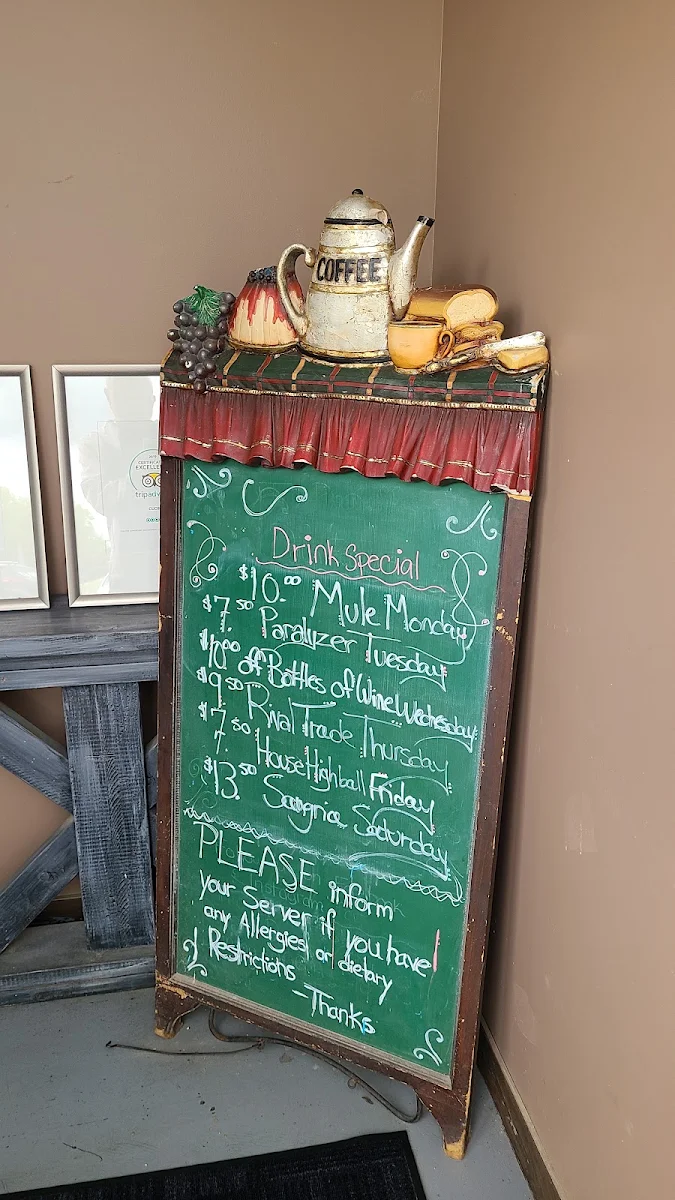 COFFEE
CERTIFICATE
EXCELLENCE
Drink Special
$10.00 Mule Monday
$7.50 Paralyzer Tuesday
$10.00 off Bottles of Wine Wednesday
$9.50 Rival Trade Thursday
$7.50 House Highball Friday
$13.50 Sangria Saturday
PLEASE inform
your Server if you have
any Allergies or dietary
Restrictions
-Thanks